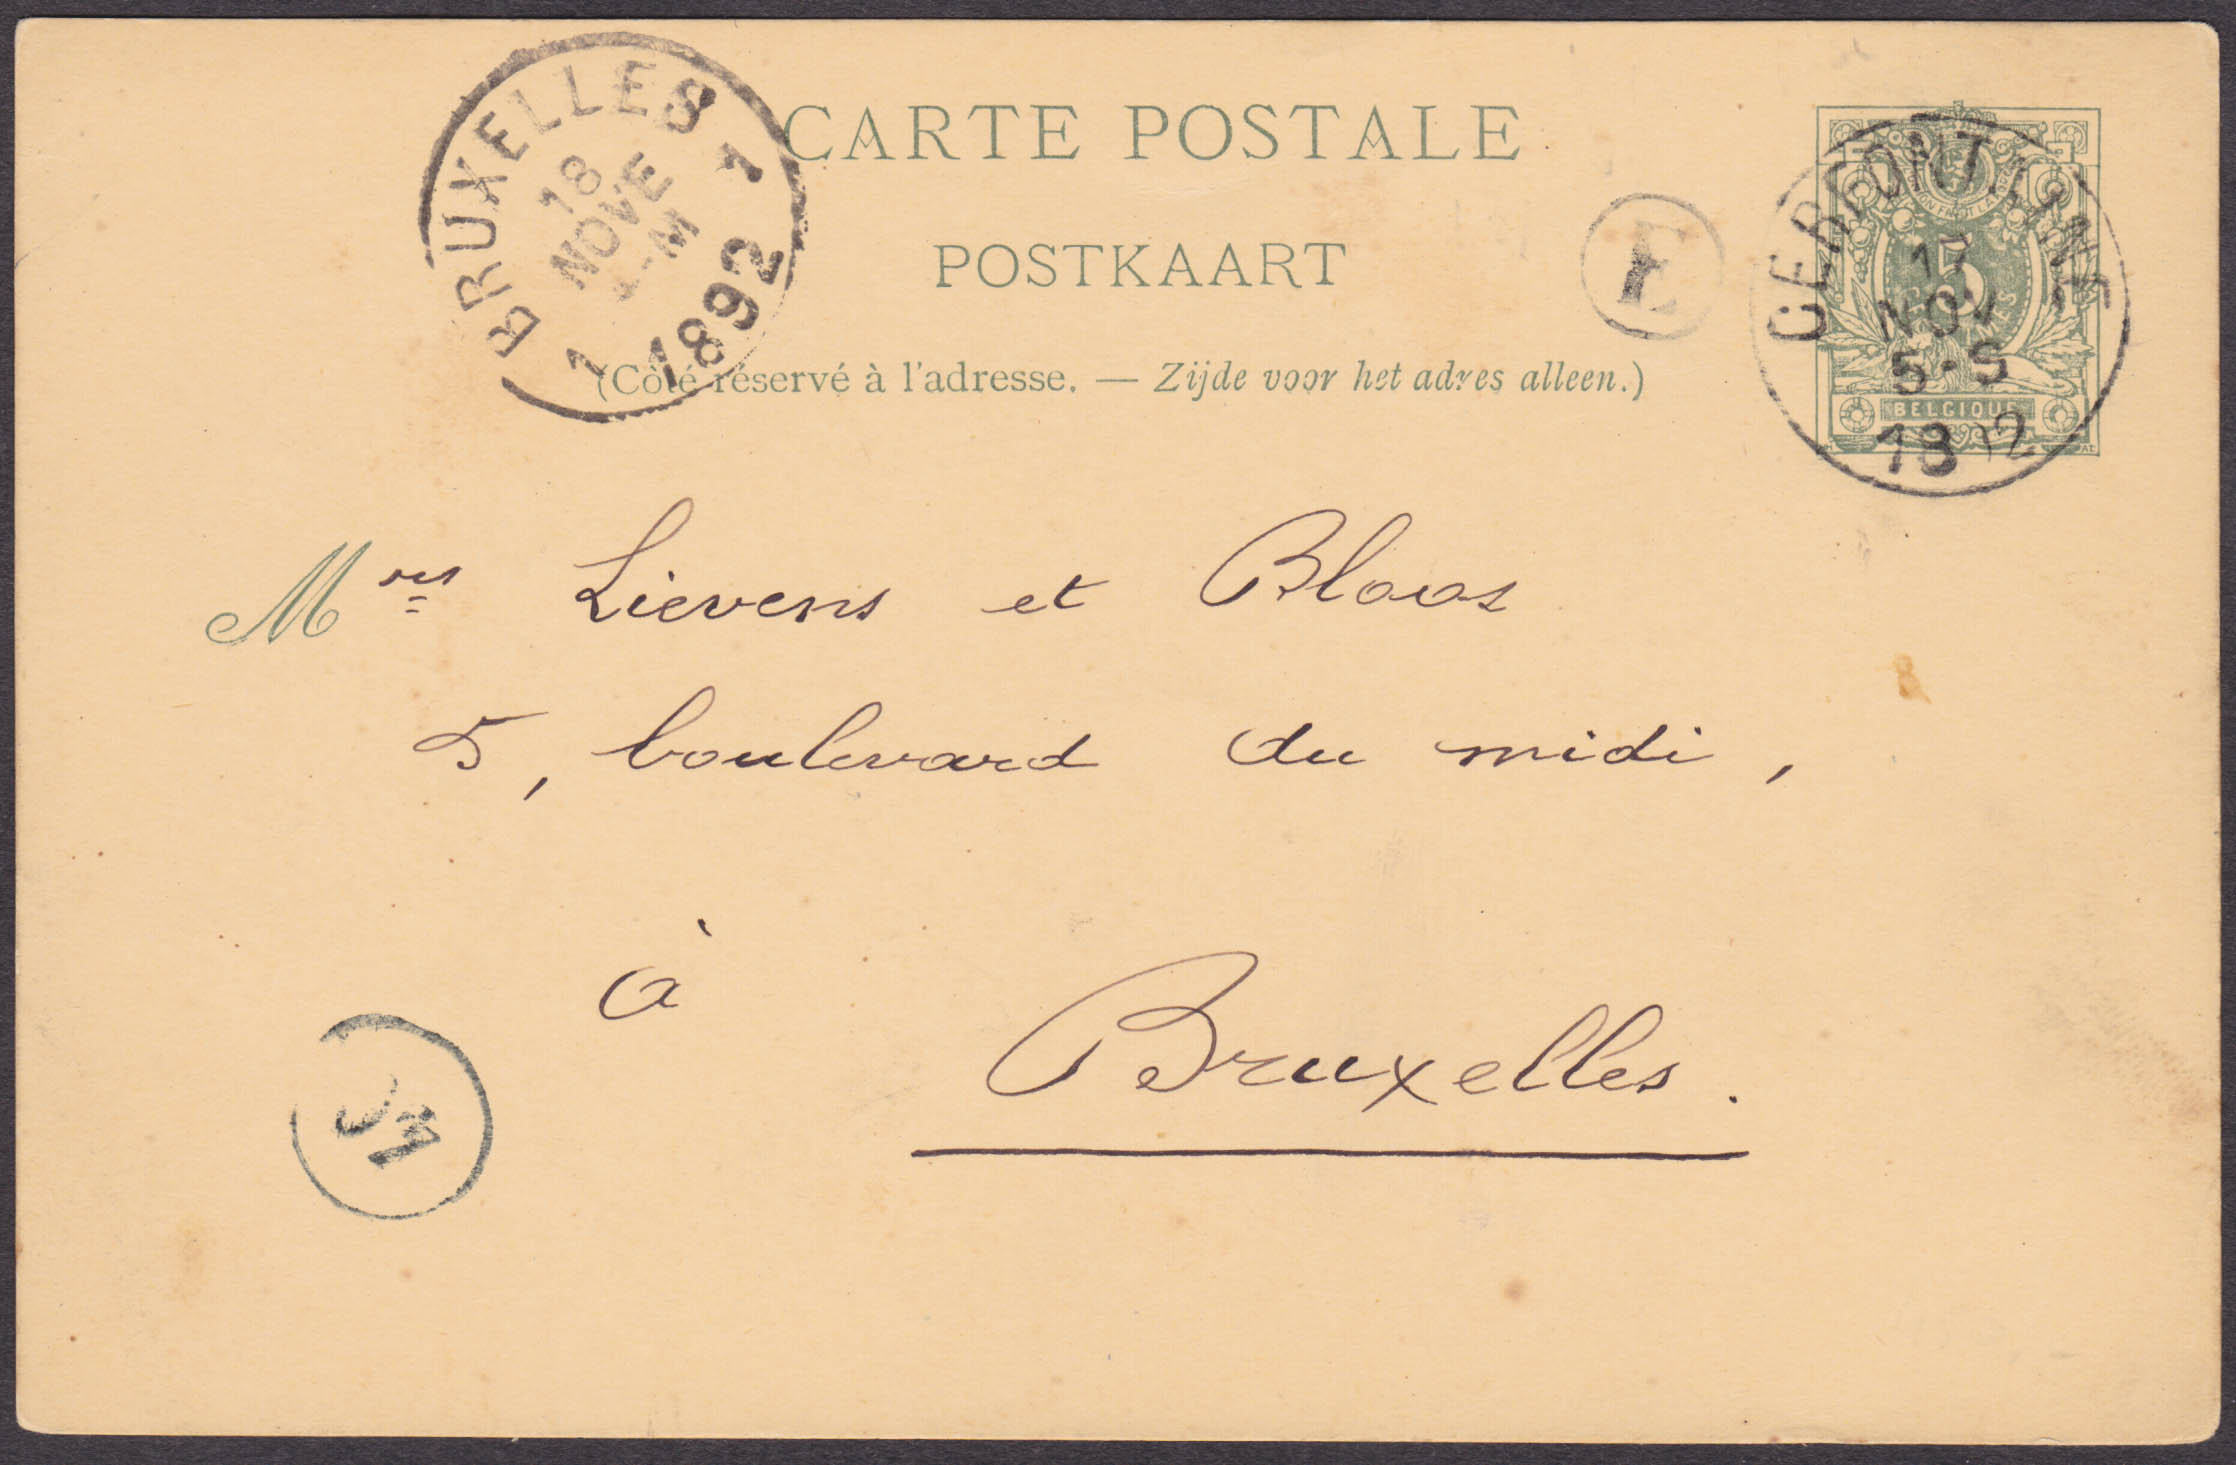 CARTE POSTALE
POSTKAART
(Côté réservé à l'adresse. — Zijde voor het adres alleen.)
BRUXELLES 1
18
NOVE
-M
1 1892
E
CERFONTAINE
17
NOV
5-S
1892
5
BELGIQUE
Mrs Lievens et Bloos
5, boulevard du midi,
à
Bruxelles.